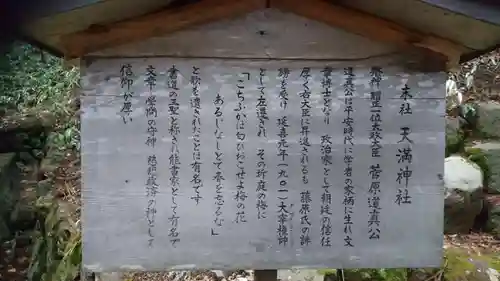 本社 天満神社
祭神 贈正一位太政大臣 菅原道真公
道真公は平安時代に学者の家柄に生れ文
章博士となり 政治家として朝廷の信任
厚く右大臣に昇進されるも 藤原氏の讒
謗を受け 延喜元年(九〇一)大宰権師
として左遷され その折庭の梅に
「こちふかば匂ひおこせよ梅の花
あるじなしとて春を忘るな」
と称を遺されたことは有名です
書道の三聖と称され能書家として有名で
文章 学問の守神 慈悲救済の神として
信仰が厚い